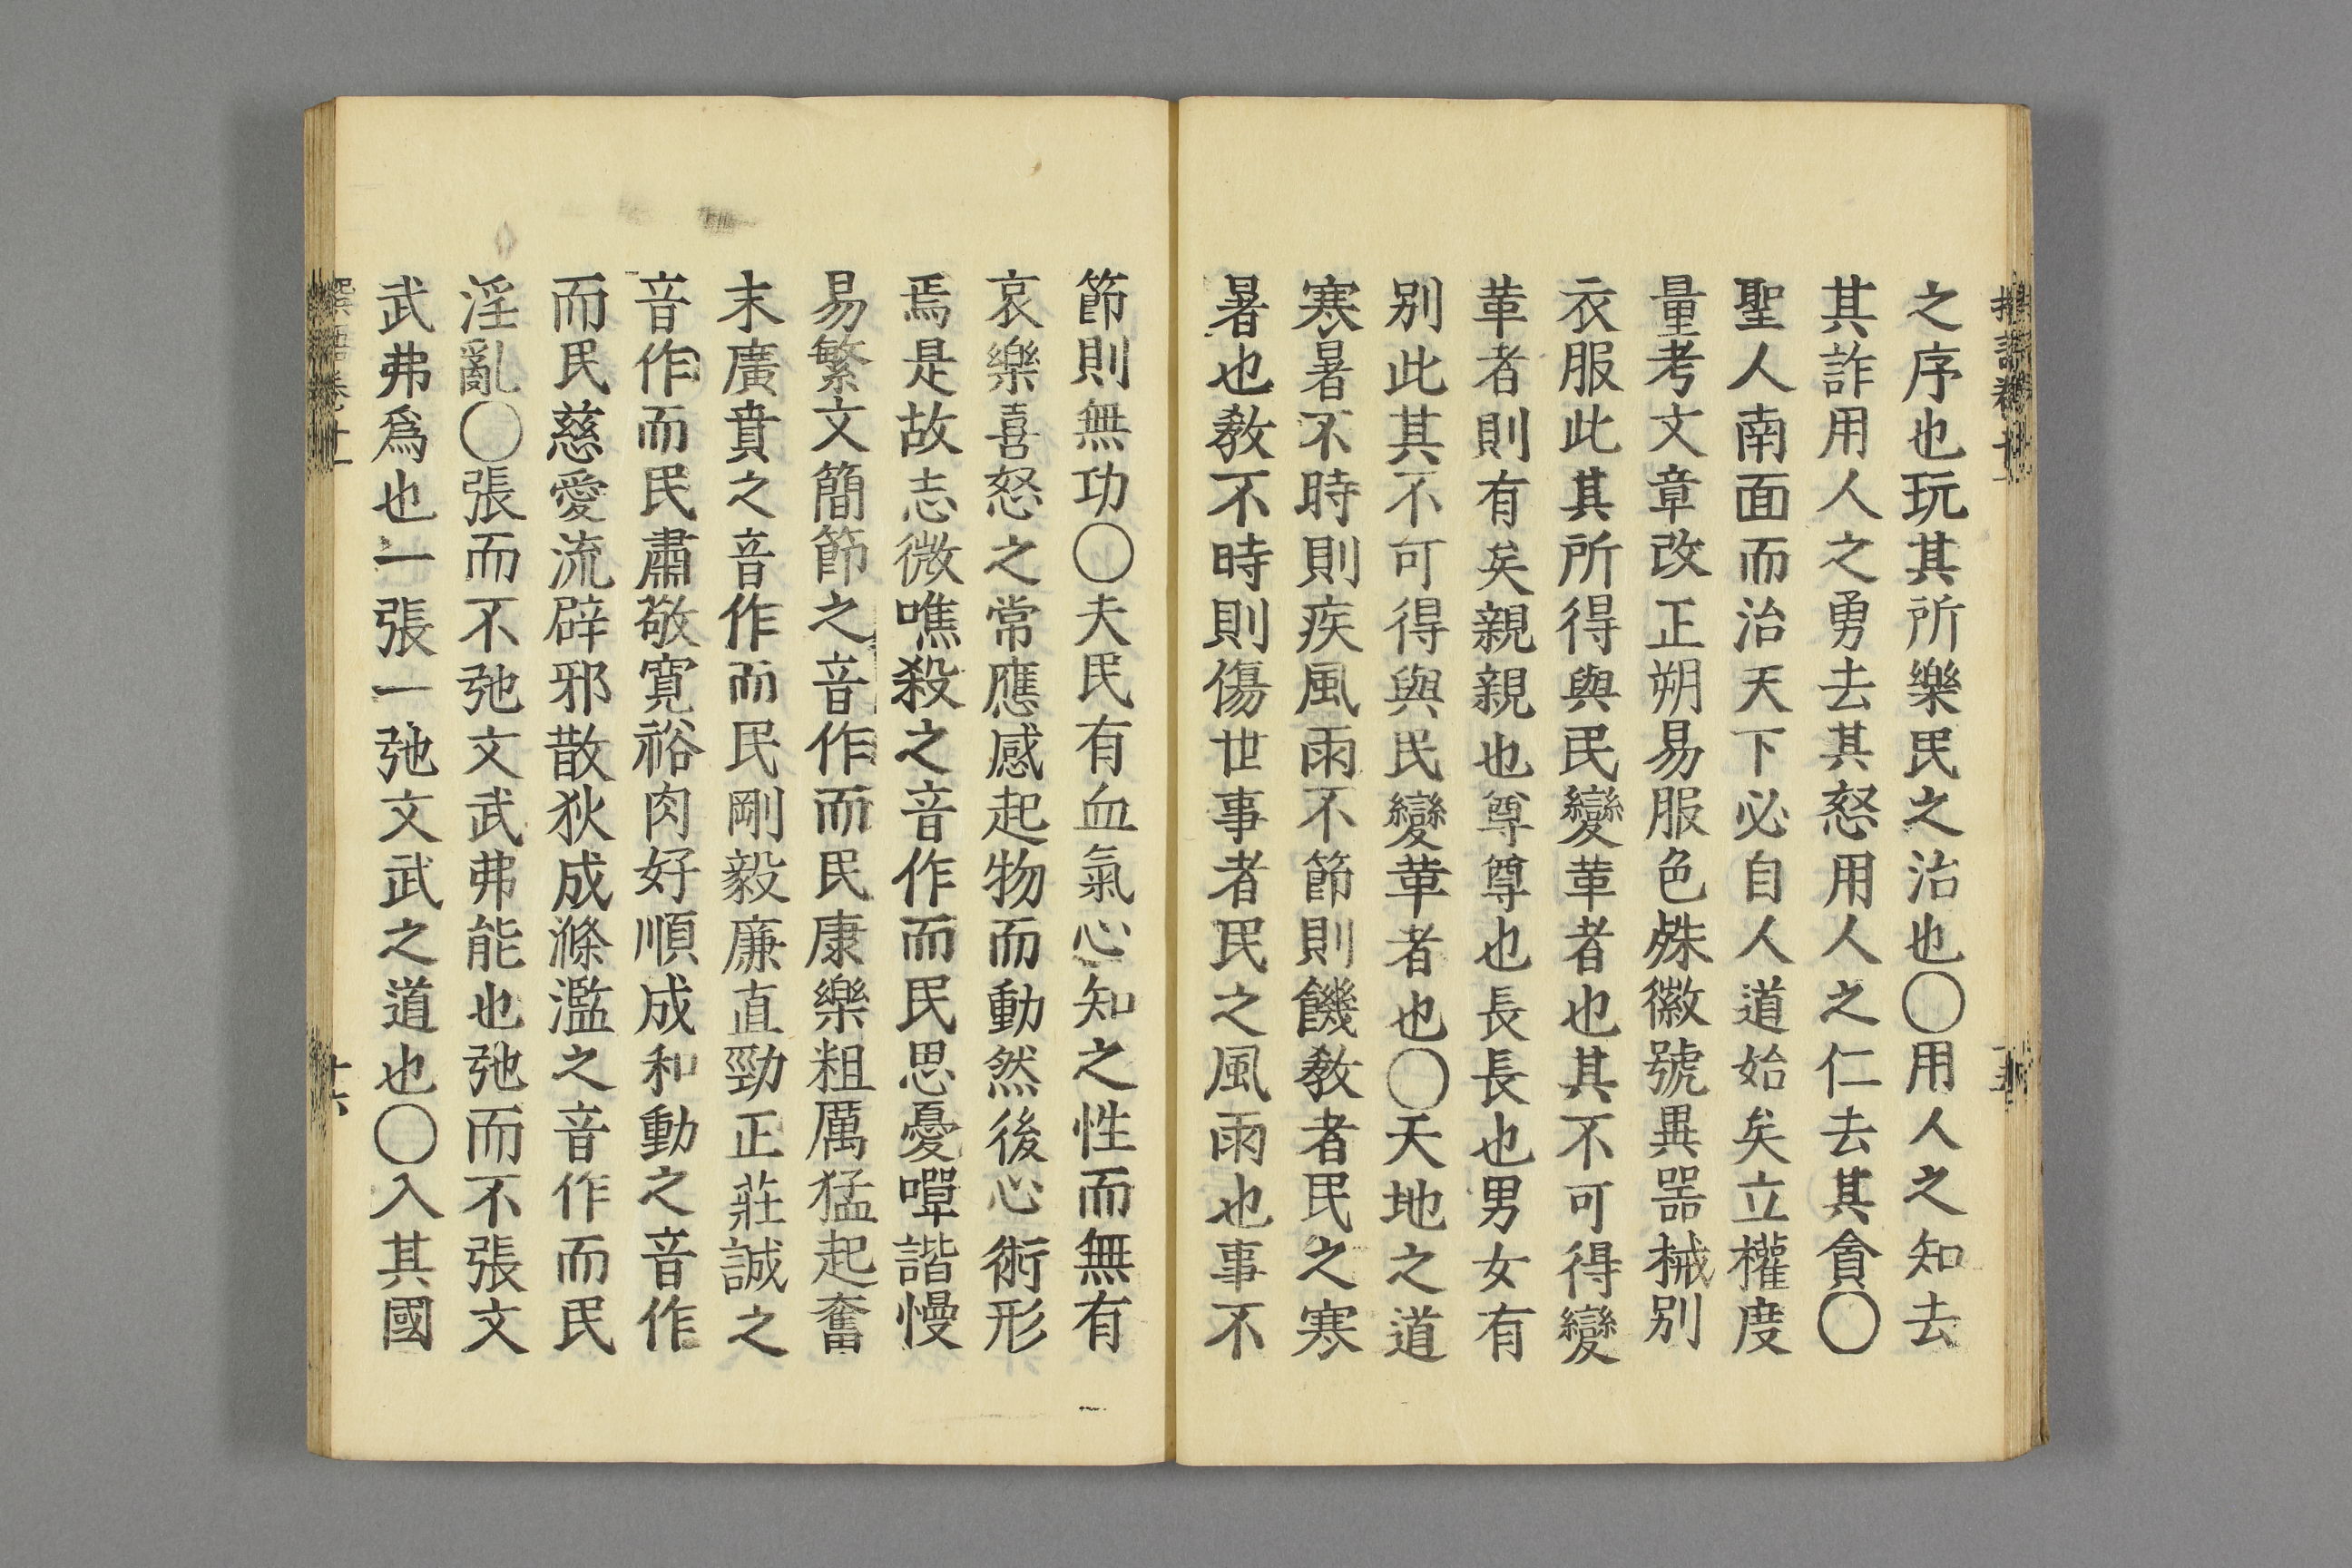 之序也玩其所樂民之治也〇用人之知去
其詐用人之勇去其怒用人之仁去其貪〇
聖人南面而治天下必自人道始矣立權度
量考文章改正朔易服色殊徽號異噐械别
衣服此其所得與民變革者也其不可得變
革者則有矣親親也尊尊也長長也男女有
别此其不可得與民變革者也〇天地之道
寒暑不時則疾風雨不節則饑教者民之寒
暑也教不時則傷世事者民之風雨也事不
節則無功〇夫民有血氣心知之性而無有
哀樂喜怒之常應感起物而動然後心術形
焉是故志微噍殺之音作而民思憂嘽諧慢
易繁文簡節之音作而民康樂粗厲猛起奮
末廣賁之音作而民剛毅廉直勁正莊誠之
音作而民肅敬寬裕肉好順成和動之音作
而民慈愛流辟邪散狄成滌濫之音作而民
淫亂〇張而不弛文武弗能也弛而不張文
武弗爲也一張一弛文武之道也〇入其國
十六